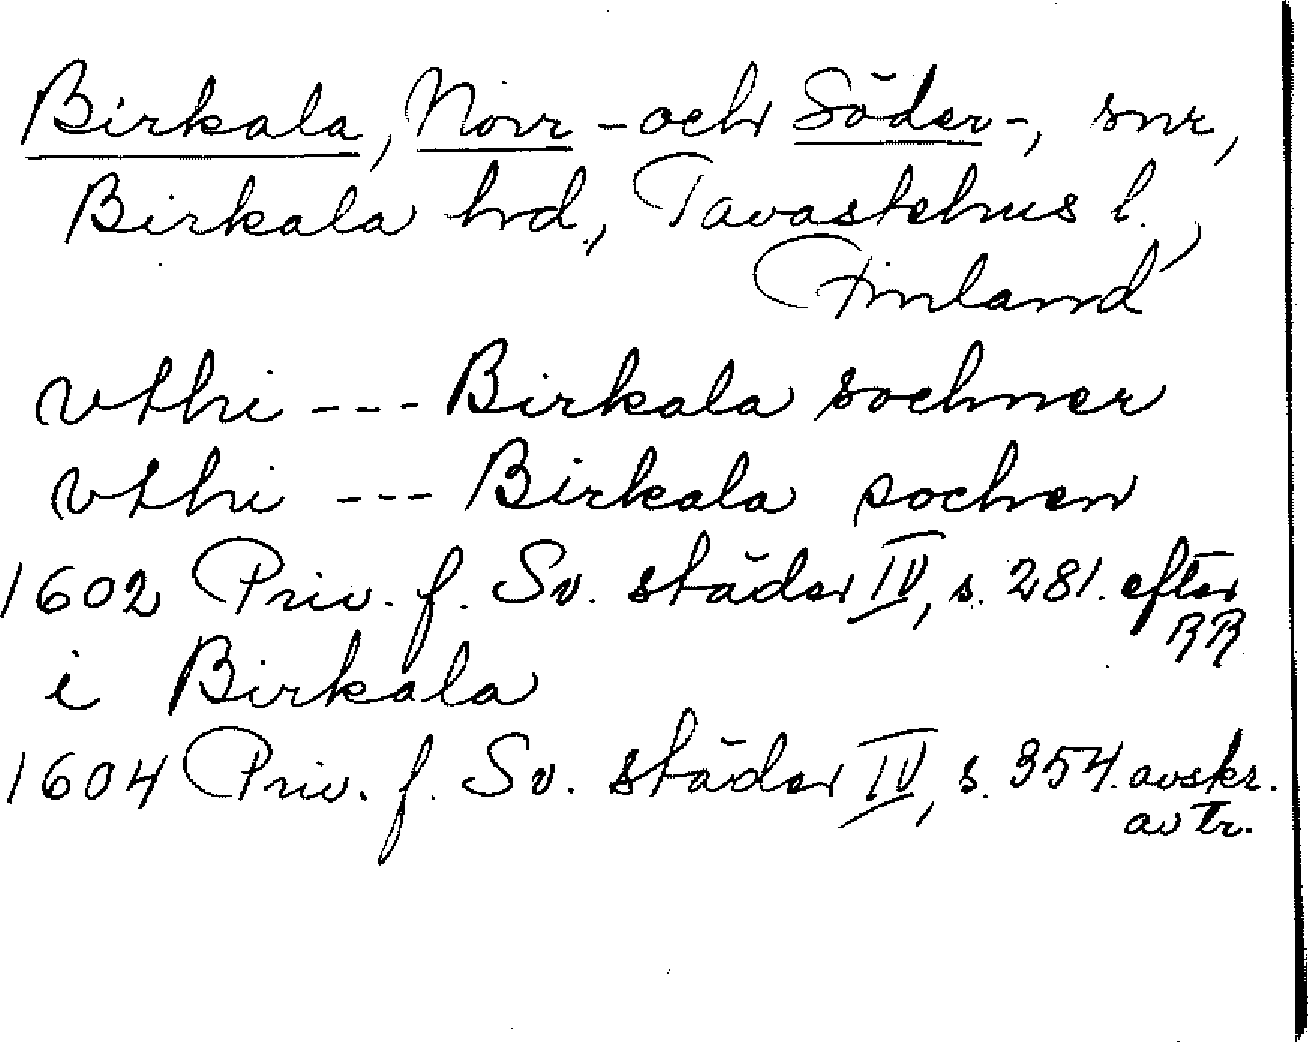 Birkala, Norr- och Söder-, snr,
Birkala hrd., Tavastehus l.,
Finland
vthi --- Birkala sochner
vthi --- Birkala sochen
1602 Priv. f. Sv. städer IV, s. 281. efter
RR
i Birkala
1604 Priv. f. Sv. städer IV, s. 354. avskr.
av tr.